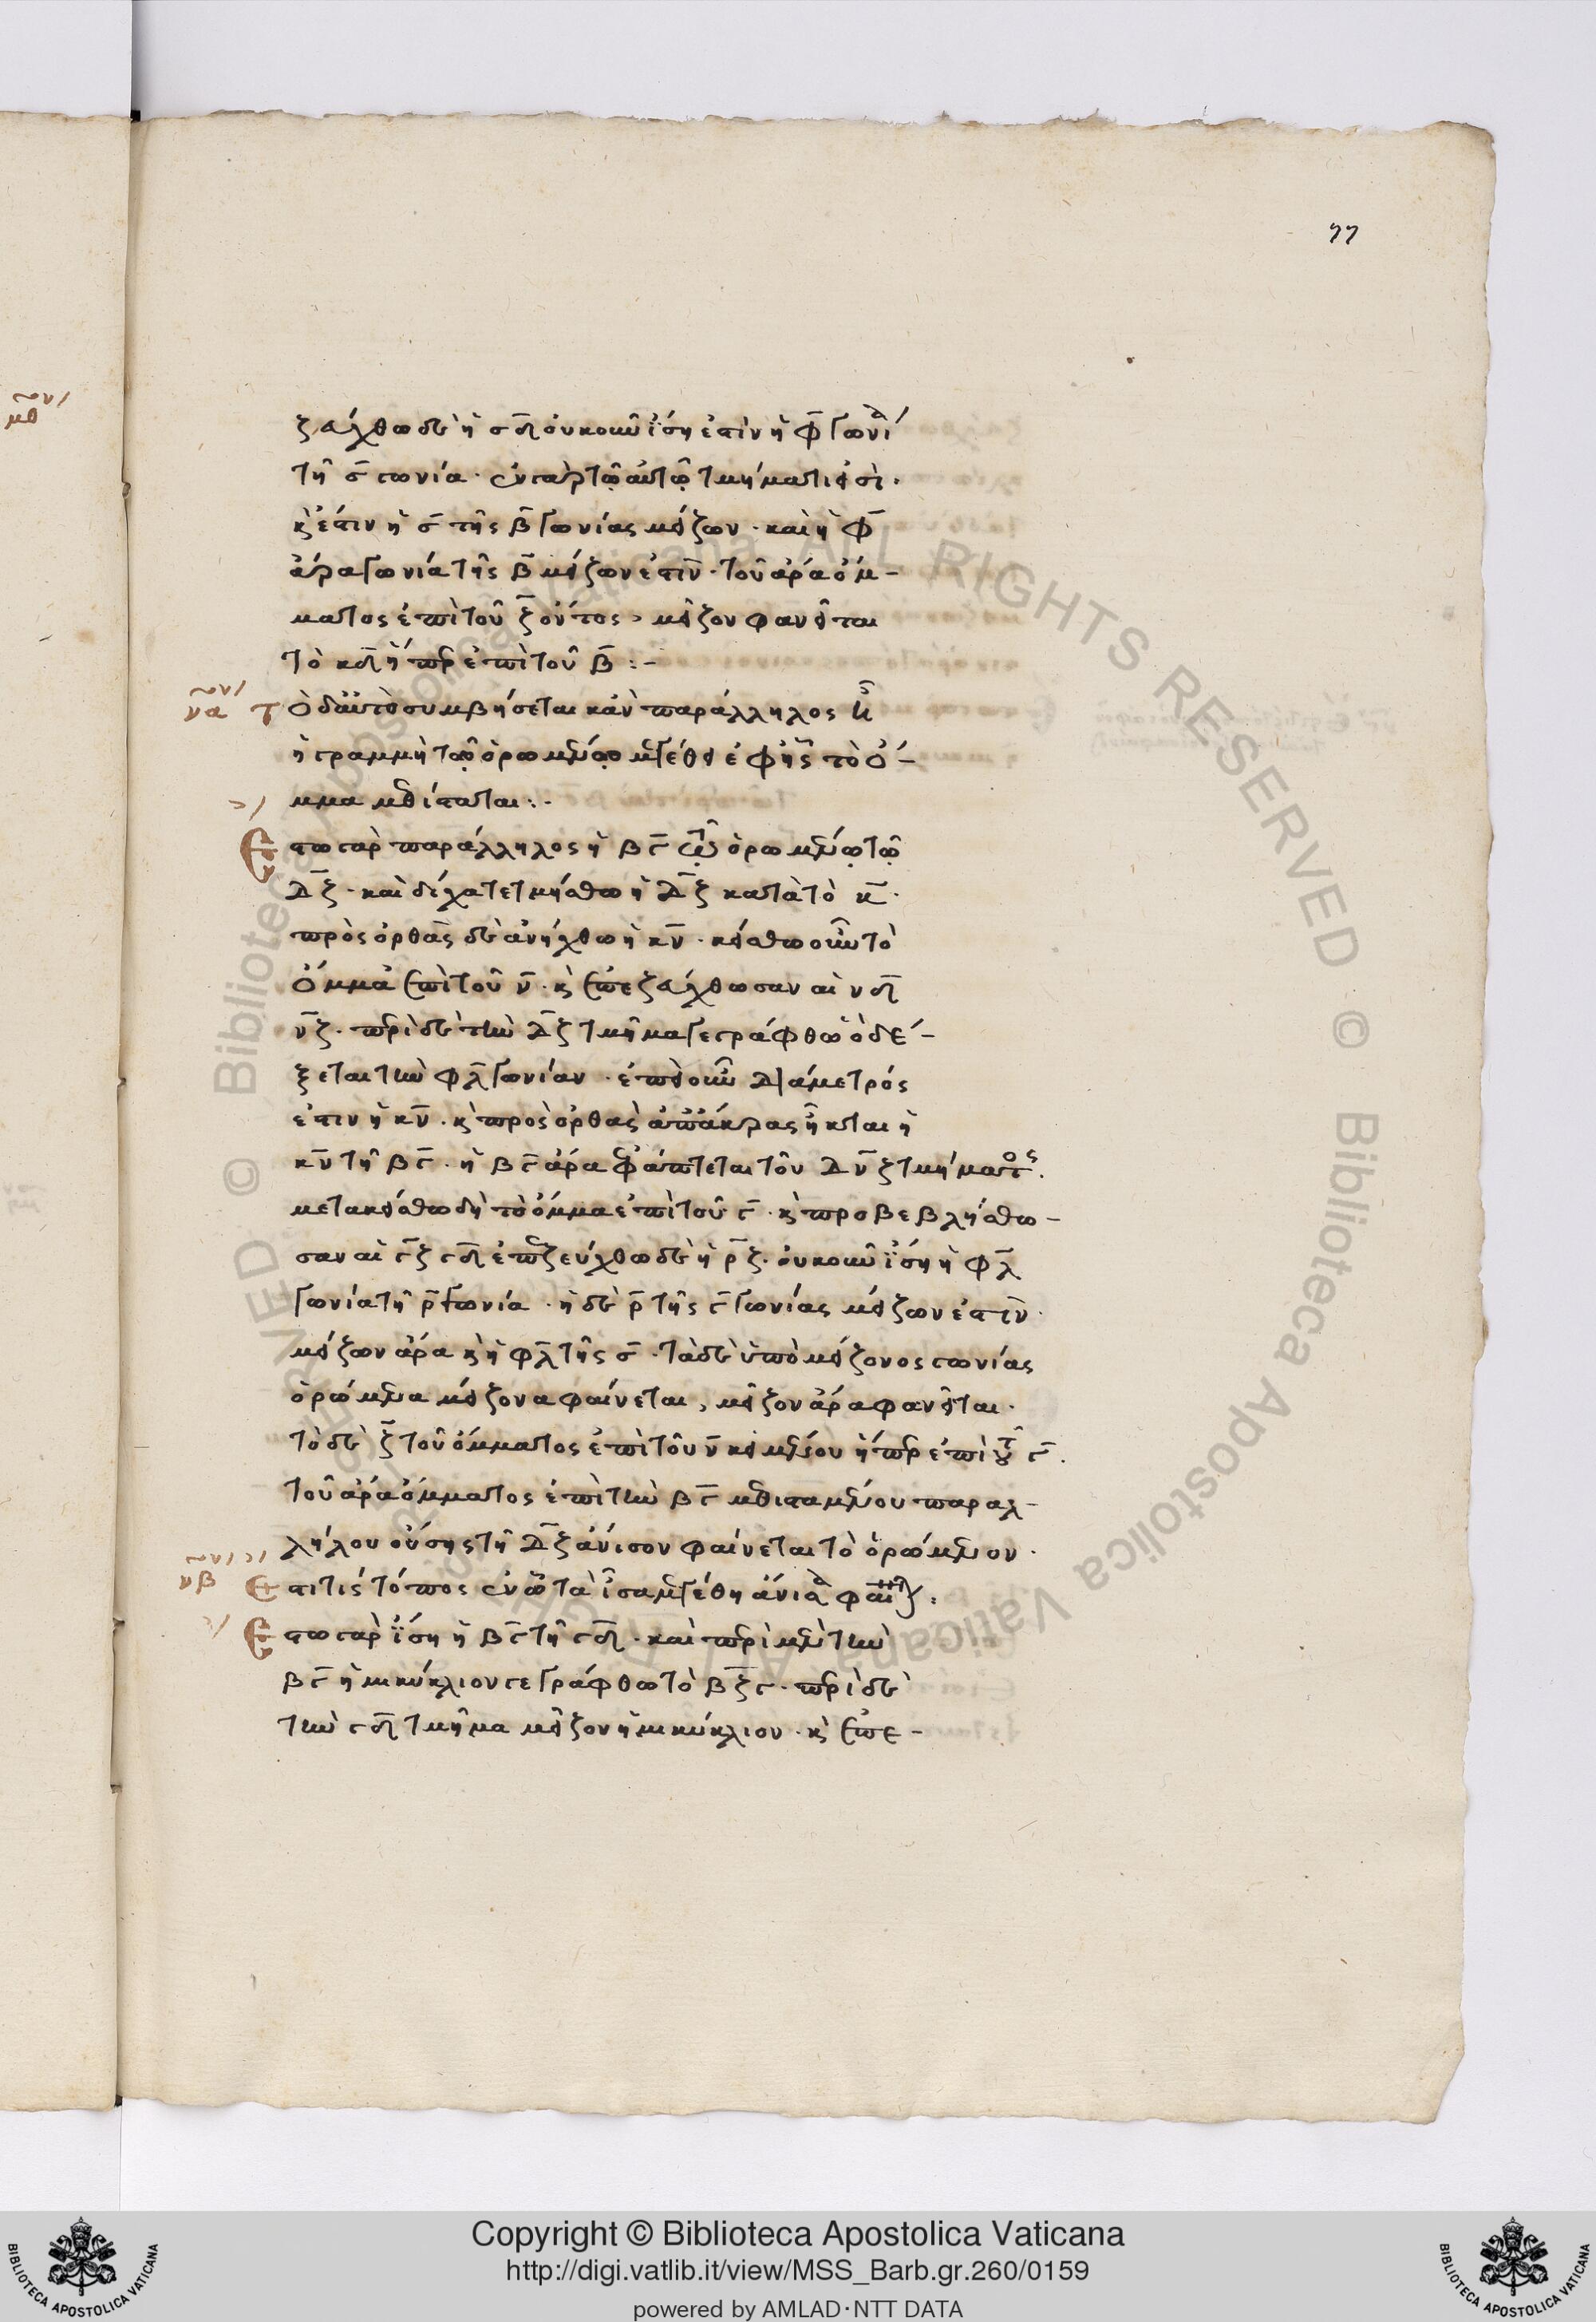 77
ζεύχθω δὲ ἡ σδ οὐκοῦν ἴση ἐστὶν ἡ φ γωνία
τῇ σ γωνία · ἐν γὰρ τῷ αὐτῷ τμήματι εἰσὶ ·
κ̀ ἐστιν ἡ σ τῆς β γωνίας μείζων · καὶ ἡ φ
ἄρα γωνία τῆς β μείζων ἐστὶν · τοῦ ἄρα ὄμ-
ματος ἐπὶ τοῦ ζ ὄντος, μεῖζον φανεῖται
τὸ κδ ἤπερ ἐπὶ τοῦ β :-
να Τ ὸ δ' αὐτὸ συμβήσεται κἀν παράλληλος ᾖ
ἡ γραμμὴ τῷ ὁρωμένῳ μεγέθει ἐφ' ἧς τὸ ὄ-
μμα μεθίσταται :-
Ἔ στω γὰρ παράλληλος ἡ βγ τῷ ὁρωμένῳ τῷ
δζ · καὶ δίχα τετμήσθω ἡ δζ κατὰ τὸ κ ·
πρὸς ὀρθὰς δὲ ἀνήχθω ἡ κν · κείσθω οὖν τὸ
ὄμμα ἐπὶ τοῦ ν · κ̀ ἐπεζεύχθωσαν αἱ νδ
νζ · περὶ δὲ τὴν δζ τμῆμα γεγράφθω ὃ δέ-
ξεται τὴν φλ γωνίαν · ἐπεὶ οὖν διάμετρός
ἐστιν ἡ κν · κ̀ πρὸς ὀρθὰς ἀπ' ἄκρας ἦκται ἡ
κν τῇ βγ · ἡ βγ ἄρα ἐφάπτεται τοῦ δνζ τμήματος.
μετακείσθω δὴ τὸ ὄμμα ἐπὶ τοῦ γ · κ̀ προσβεβλήσθω-
σαν αἱ γζ γδ ἐπεζεύχθω δὲ ἡ ρζ · οὐκοῦν ἴση ἡ φλ
γωνία τῇ ρ γωνία · ἡ δὲ ρ τῆς γ γωνίας μείζων ἐστὶν ·
μείζων ἄρα κ̀ ἡ φλ τῆς σ · τὰ δὲ ὑπὸ μείζονος γωνίας
ὁρώμενα μείζονα φαίνεται, μεῖζον ἄρα φανεῖται ·
τὸ δὲ ζ τοῦ ὄμματος ἐπὶ τοῦ ν κειμένου ἤπερ ἐπὶ τοῦ γ.
τοῦ ἄρα ὄμματος ἐπὶ τὴν βγ μεθισταμένου παραλ-
λήλου οὔσης τῇ δζ ἄνισον φαίνεται τὸ ὁρώμενον ·
νβ Ἔ στι τις τόπος ἐν ᾧ τὰ ἴσα μεγέθη ἄνισα φαίνεται :
Ἔ στω γὰρ ἴση ἡ βγ τῇ γδ · καὶ περὶ μὲν τὴν
βγ ἡμικύκλιον γεγράφθω τὸ βζγ · περὶ δὲ
τὴν γδ τμῆμα μεῖζον ἡμικύκλιον · κ̀ ἐπε-
Copyright © Biblioteca Apostolica Vaticana
http://digi.vatlib.it/view/MSS_Barb.gr.260/0159
powered by AMLAD·NTT DATA